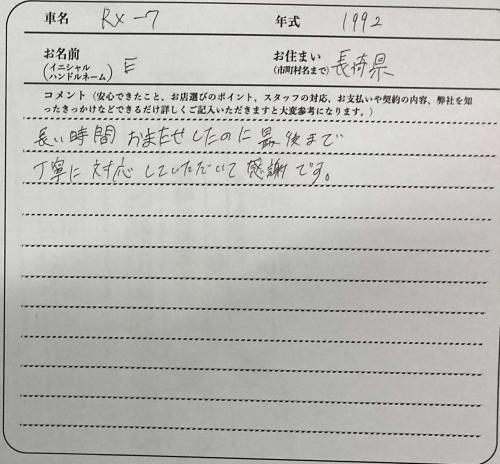 車名 RX-7 年式 1992
お名前 (イニシャル ハンドルネーム) E お住まい (市町村名まで) 長崎県
コメント (安心できたこと、お店選びのポイント、スタッフの対応、お支払いや契約の内容、弊社を知
ったきっかけなどできるだけ詳しくご記入いただきますと大変参考になります。)
長い時間 おまたせしたのに 最後まで
丁寧に 対応していただいて 感謝です。